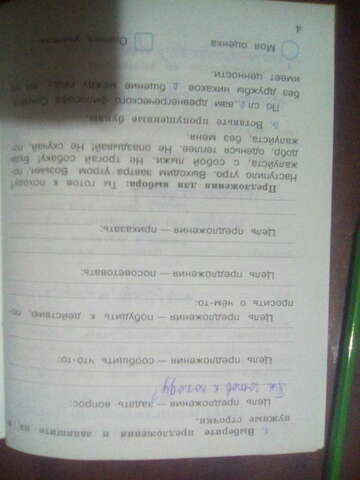 4. Выберите предложения и запишите на
нужные строчки.
Цель предложения — задать вопрос:
Ты готов к походу?
Цель предложения — сообщить что-то:
Цель предложения — побудить к действию, по-
просить о чём-то:
Цель предложения — посоветовать:
Цель предложения — приказать:
Предложения для выбора: Ты готов к походу?
Наступило утро. Выходим завтра утром. Возьми, по-
жалуйста, с собой лыжи. Не трогай собаку! Будь
добр, оденься теплее. Не опаздывай! Не скучай,
жалуйста, без меня.
5. Вставьте пропущенные буквы.
По сл вам древнегреческого философа Сократа,
без дружбы никакое общение между людьми не
имеет ценности.
Моя оценка
Оценка учителя
4